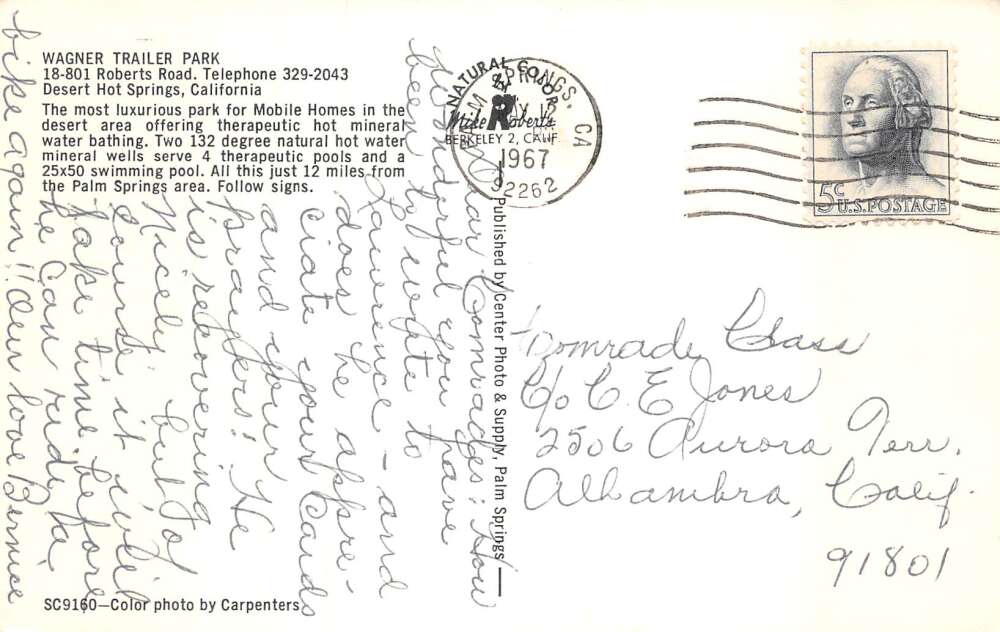 WAGNER TRAILER PARK
18-801 Roberts Road. Telephone 329-2043
Desert Hot Springs, California
The most luxurious park for Mobile Homes in the
desert area offering therapeutic hot mineral
water bathing. Two 132 degree natural hot water
mineral wells serve 4 therapeutic pools and a
25x50 swimming pool. All this just 12 miles from
the Palm Springs area. Follow signs.
Dear Comrades: How
wonderful you have
been to write to
Lawrence - and
does he appre-
ciate your Cards
and your
prayers!! He
is recovering
Nicely but of
Course it will
take time before
he can ride a
bike again!! Our love Bernice
SC9160—Color photo by Carpenters
NATURAL COLOR
BY
Mike Roberts
BERKELEY 2, CALIF.
PALM SPRINGS, CA
MAY 15
1967
92262
Published by Center Photo & Supply, Palm Springs
5¢
U.S. POSTAGE
Comrade Class
C/o C. E Jones
2506 Aurora Terr.
Alhambra, Calif.
91801